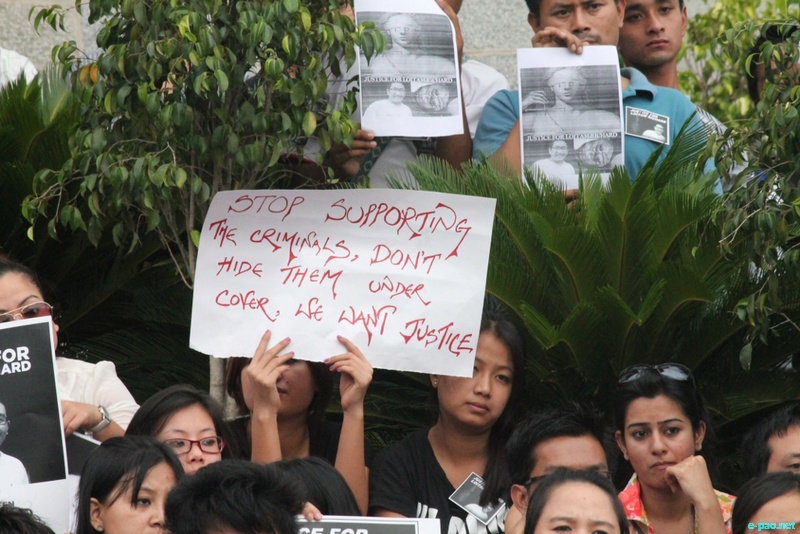 JUSTICE FOR LOITAM RICHARD
JUSTICE FOR LOITAM RICHARD
STOP SUPPORTING
THE CRIMINALS, DON'T
HIDE THEM UNDER
COVER, WE WANT JUSTICE
FOR
ARD
CE FOR
e-pao.net